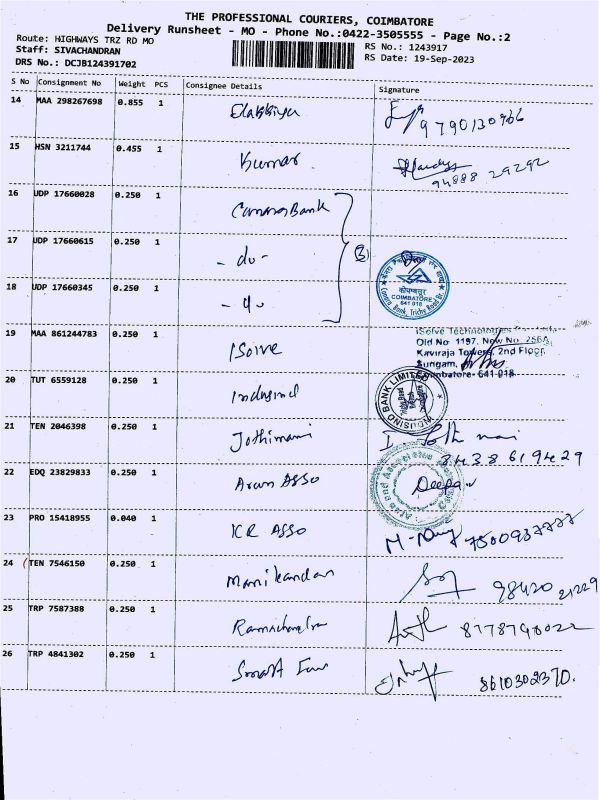 THE PROFESSIONAL COURIERS, COIMBATORE
Delivery Runsheet - MO - Phone No.:0422-3505555 - Page No.:2
Route: HIGHWAYS TRZ RD MO
RS No.: 1243917
Staff: SIVACHANDRAN
RS Date: 19-Sep-2023
DRS No.: DCJB124391702
S No Consignment No Weight PCS Consignee Details Signature
14 MAA 298267698 0.855 1 Elakkiya
9790130966
15 HSN 3211744 0.455 1 Kumar
94888 29292
16 UDP 17660028 0.250 1 Canara Bank
17 UDP 17660615 0.250 1 - do -
(3)
कोयम्बत्तूर
COIMBATORE
641 018
Canara Bank, Trichy Road Br.
18 UDP 17660345 0.250 1 - do -
19 MAA 861244783 0.250 1 ISolve
iSolve Technologies
Old No 1197, New No. 256A
Kaviraja Towers, 2nd Floor,
Sungam,
Coimbatore- 641 018
20 TUT 6559128 0.250 1 Indusind
INDUSIND BANK LIMITED
21 TEN 2046398 0.250 1 Jothimani
8438619429
22 EDQ 23829833 0.250 1 Arun Asso
Deepa
23 PRO 15418955 0.040 1 KR Asso
24 TEN 7546150 0.250 1 Manikandan
98420 21229
25 TRP 7587388 0.250 1 Ramachandra
26 TRP 4841302 0.250 1 Smart
8610302370.